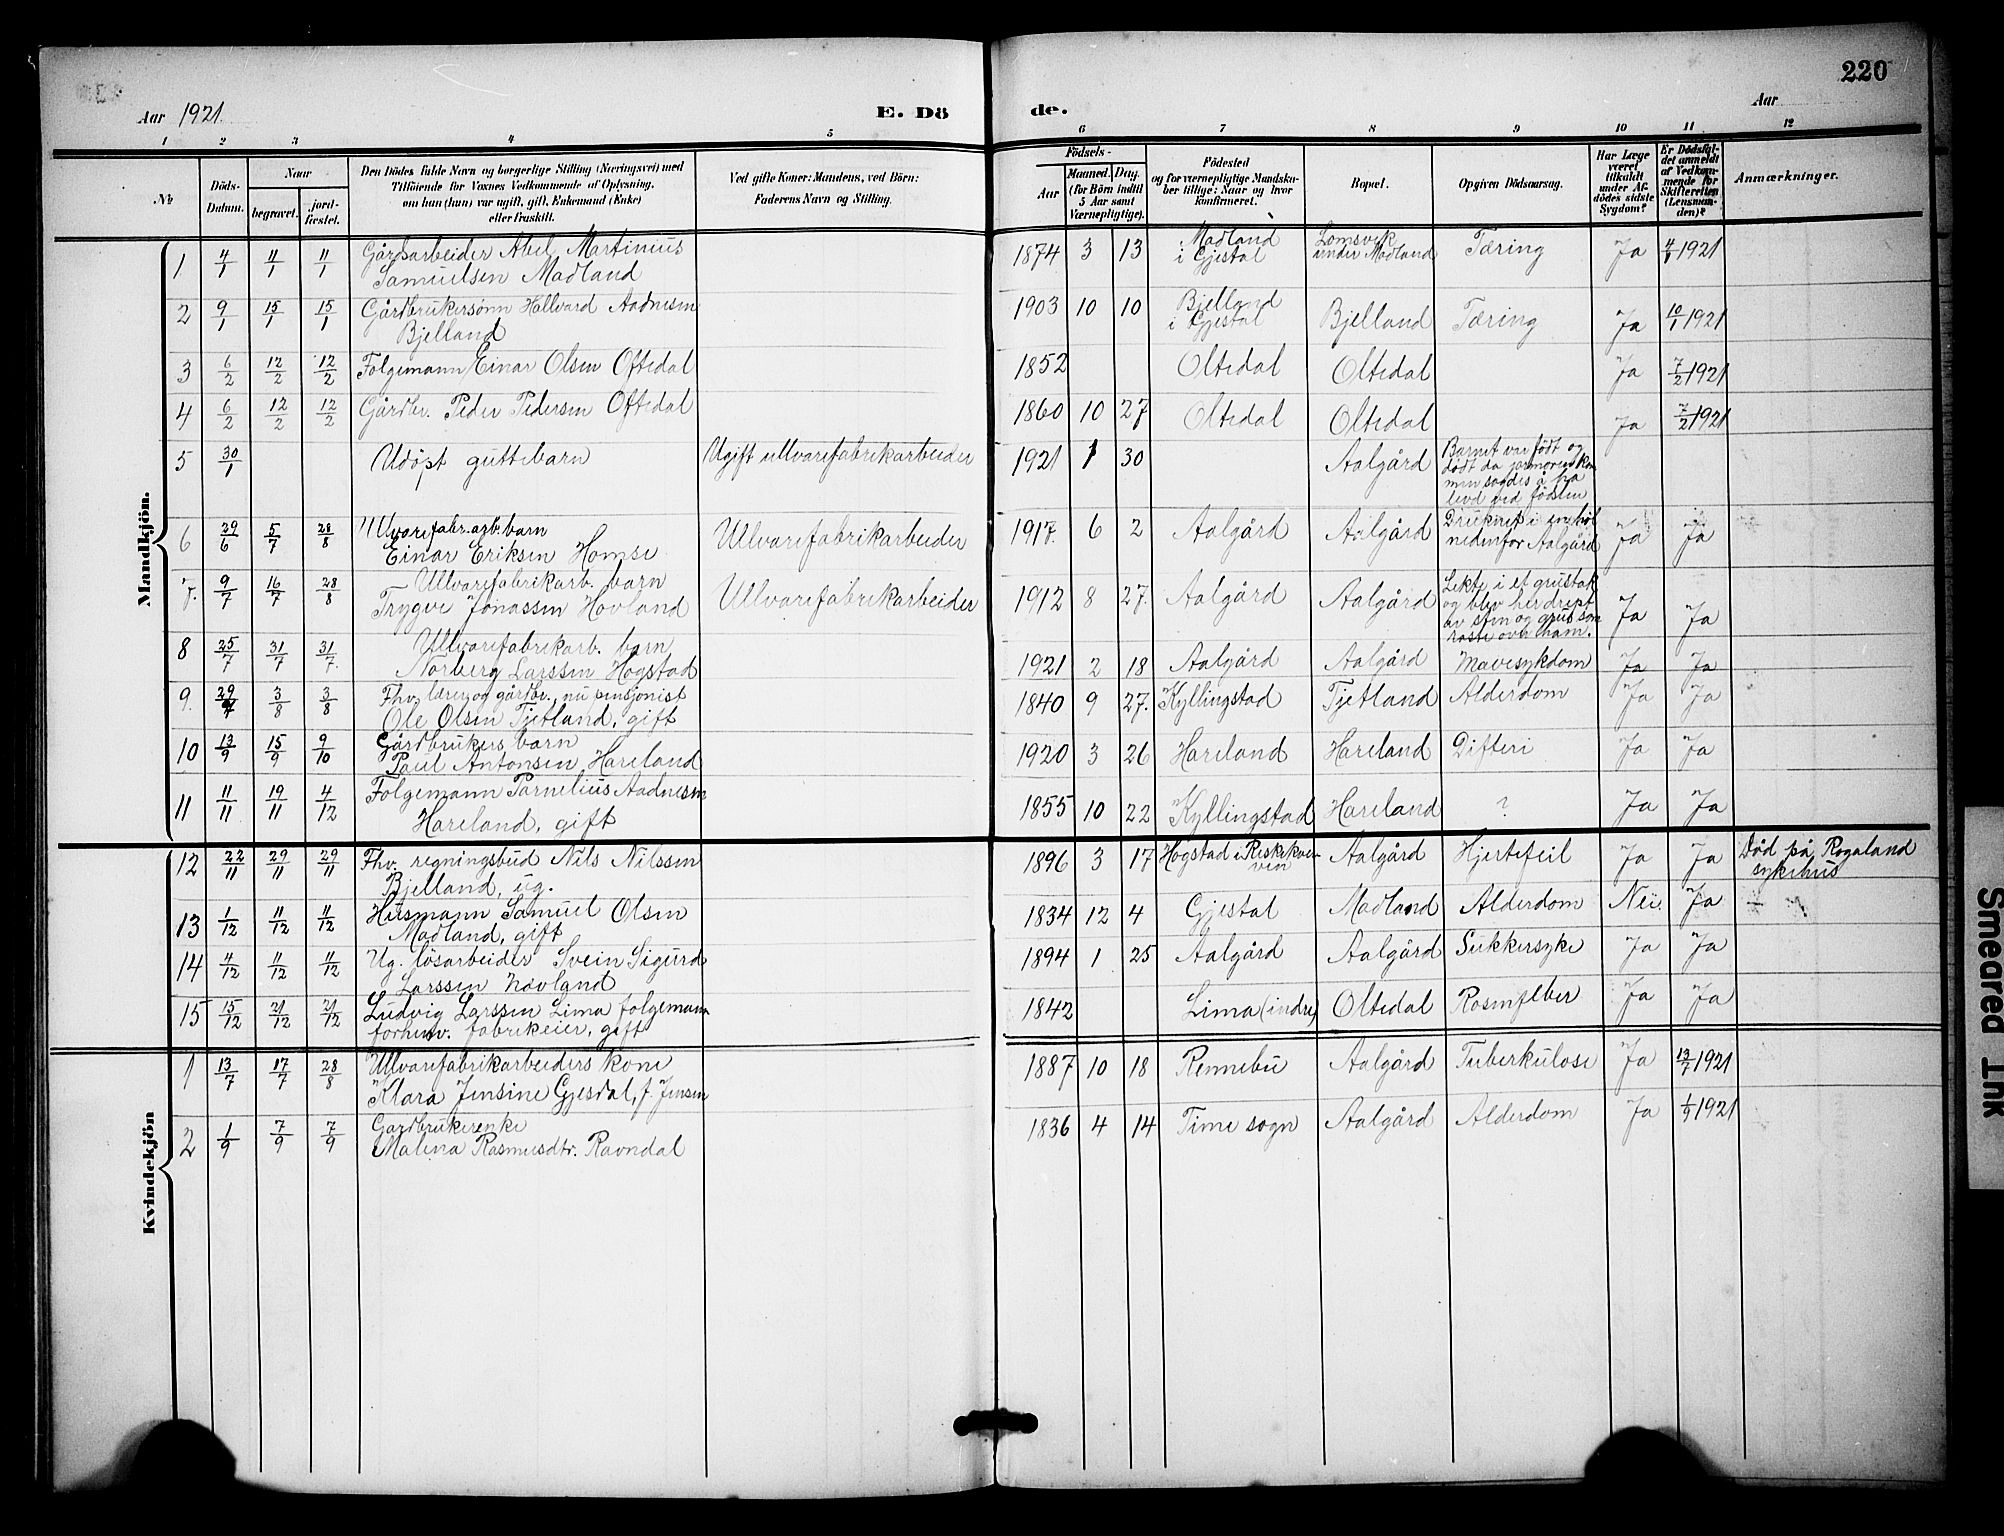 220
Aar 1921. E. Dö de. Aar
1 2 3 4 5 6 7 8 9 10 11 12
Nr.
Döds-Datum.
Naar
begravet.
jord-fæstet.
Den Dödes fulde Navn og borgerlige Stilling (Næringsvei) med
Tilföiende for Voxnes Vedkommende af Oplysning,
om han (hun) var ugift, gift, Enkemand (Enke)
eller fraskilt.
Ved gifte Koner: Mandens, ved Börn:
Faderens Navn og Stilling.
Födsels-
Aar
Maaned. Dag.
(for Börn indtil
5 Aar samt
Værnepligtige).
Födested
og for værnepligtige Mandska-
ber tillige: Naar og hvor
konfirmeret.
Bopæl.
Opgiven Dödsaarsag.
Har Læge
været
tilkaldt
under Af-
dödes sidste
Sygdom?
Er Dödsfal-
det anmeldt
af Vedkom-
mende for
Skifteretten
(Lensman-
den)?
Anmærkninger.
Mandkjön.
1 4/1 11/1 11/1 Gårdsarbeider Abel Martinius
Samuelsen Madland
1874 3 13 Madland
i Gjestal
Lomsvik
under Madland
Tæring Ja 4/1 1921
2 9/1 15/1 15/1 Gårdbrukersønn Hallvard Aadnesen
Bjelland
1903 10 10 Bjelland
i Gjestal
Bjelland Tæring Ja 10/1 1921
3 6/2 12/2 12/2 Folgemann Einar Olsen Oftedal 1852 Oltedal Oltedal Ja 7/2 1921
4 6/2 12/2 12/2 Gårdbr. Peder Pedersen Oftedal 1860 10 27 Oltedal Oltedal Ja 7/2 1921
5 30/1 Udøpt guttebarn Ugift ullvarefabrikarbeider 1921 1 30 Aalgård
Barnet var født og
dødt da jormoren kom
men sagdes å ha
levd ved fødslen
6 29/6 5/7 28/8 Ulvarefabr.arb. barn
Einar Eriksen Homse
Ullvarefabrikarbeider 1917. 6 2 Aalgård Aalgård
Druknet i en høl
nedenfor Aalgård
Ja Ja
7. 9/7 16/7 28/8 Ullvarefabrikarb. barn
Trygve Jonassen Hovland
Ullvarefabrikarbeider 1912 8 27. Aalgård Aalgård
Lekte i et grustak
og blev her drept
av sten og grus som
raste over ham.
Ja Ja
8 25/7 31/7 31/7. Ullvarefabrikarb. barn
Norberg Larssen Hogstad
1921 2 18 Aalgård Aalgård Mavesykdom Ja Ja
9. 29/7 3/8 3/8 Fhv. lærer og gårdbr., nu pensjonist
Ole Olsen Tjetland, gift
1840 9 27. Kyllingstad Tjetland Alderdom Ja Ja
10 13/9 15/9 9/10 Gårdbrukers barn
Paul Antonsen Hareland
1920 3 26 Hareland Hareland Difteri Ja Ja
11 11/11 19/11 4/12 Folgemann Parnelius Aadnesen
Hareland, gift
1855 10 22 Kyllingstad Hareland ? Ja Ja
12 22/11 29/11 29/11 Fhv. regningsbud Nils Nilssen
Bjelland, ug.
1896 3 17 Hogstad i
Aalgård Hjertefeil Ja Ja Død på Rogaland
sykehus
13 1/12 11/12 11/12 Husmann Samuel Olsen
Madland, gift
1834 12 4 Gjestal Madland Alderdom Nei. Ja
14 4/12 11/12 11/12 Ug. løsarbeider Svein Sigurd
Larssen Hovland
1894 1 25 Aalgård Aalgård Sukkersyke Ja Ja
15 15/12 21/12 21/12 Ludvig Larssen Lima folgemann
forhenv. fabrikeier, gift
1842 Lima (indre) Oltedal Rosenfeber Ja Ja
Kvindekjön
1 13/7 17/7 28/8 Ullvarefabrikarbeiders kone
Klara Jensine Gjesdal, f. Jensen
1887 10 18 Rennebu Aalgård Tuberkulose Ja 13/7 1921
2 1/9 7/9 7/9 Gardbrukerenke
Malena Rasmusdtr. Ravndal
1836 4 14 Time sogn Aalgård Alderdom Ja 1/9 1921
Smeared Ink